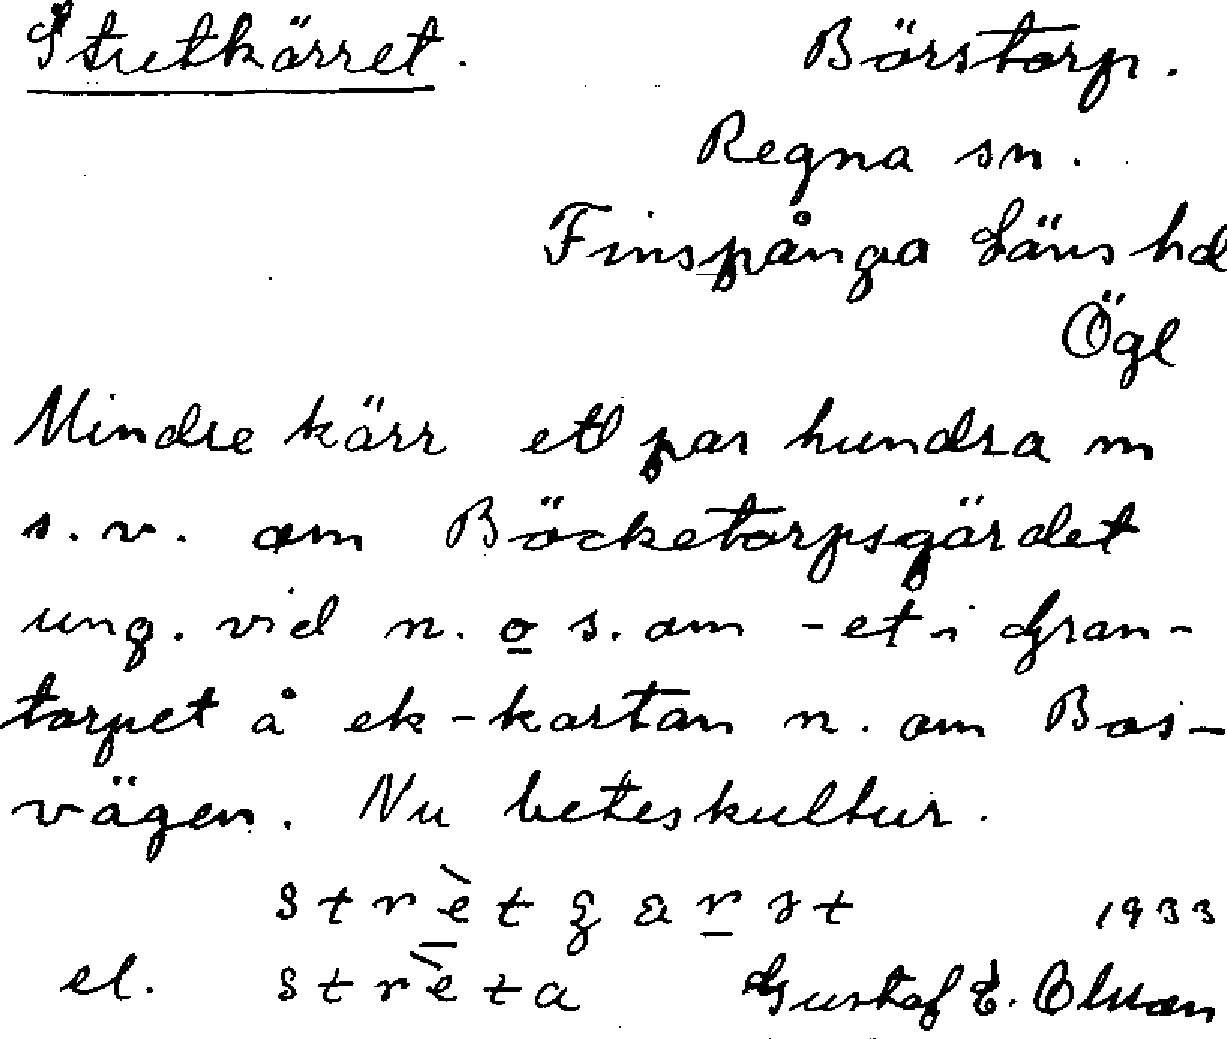 Strutkärret. Börstorp.
Regna sn.
Finspånga Läns hd
Ögl
Mindre kärr ett par hundra m
s.v. om Böcketorpsgärdet
ung. vid n. o s. om -et i Gran-
torpet å ek-kartan n. om Bos-
vägen. Nu beteskultur.
1933
el. strèta Gustaf E.